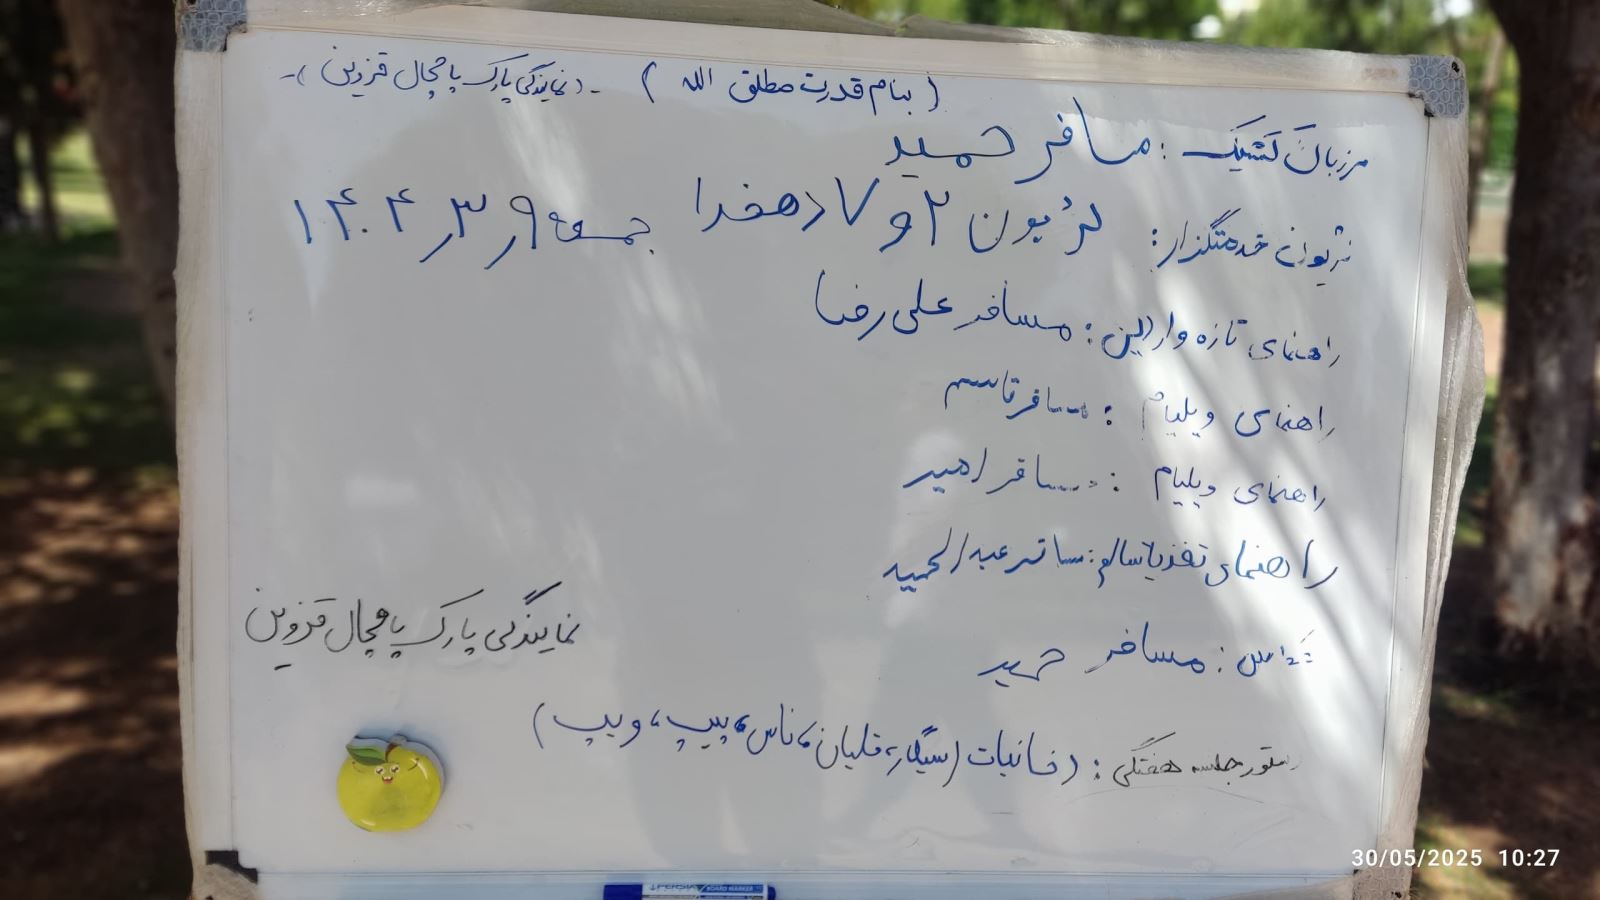 (بنام قدرت مطلق الله) -(نمایندگی پارک پامچال قزوین)-
مرزبان کشیک: مسافر حمید
لژیون خدمتگزار: لژیون ۲ و ۷ دهخدا جمعه ۹ر۳ر۱۴۰۴
راهنمای تازه واردین: مسافر علی رضا
راهنمای ویلیام: مسافر قاسم
راهنمای ویلیام: مسافر امیر
راهنمای تغذیه سالم: مسافر عبدالحمید
نمایندگی پارک پامچال قزوین
: مسافر حمید
دستور جلسه هفتگی: دخانیات (سیگار، قلیان، ناس، پیپ، ویپ)
30/05/2025 10:27